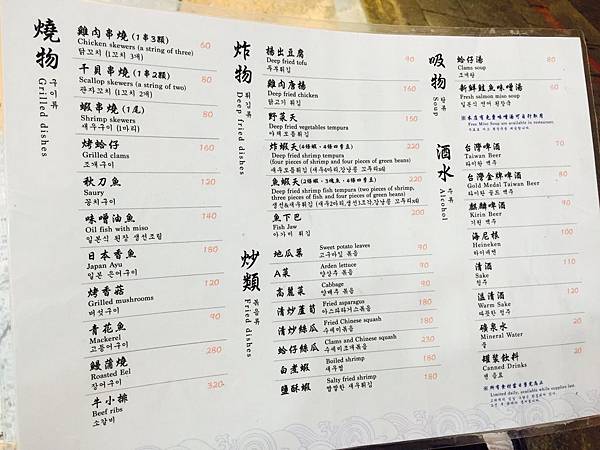 燒物
구이류
Grilled dishes
雞肉串燒 (1串3顆) 60
Chicken skewers (a string of three)
닭꼬치 (1꼬치 3개)
干貝串燒 (1串2顆) 80
Scallop skewers (a string of two)
관자꼬치 (1꼬치 2개)
蝦串燒 (1尾) 80
Shrimp skewers
새우구이 (1마리)
烤蛤仔 160
Grilled clams
조개구이
秋刀魚 120
Saury
꽁치구이
味噌油魚 140
Oil fish with miso
일본식 된장 생선조림
日本香魚 180
Japan Ayu
일본 은어구이
烤香菇
Grilled mushrooms
버섯구이
青花魚 90
Mackerel
고등어구이
鰻蒲燒 280
Roasted Eel
장어구이
牛小排 320
Beef ribs
소갈비
炸物
튀김류
Deep fried dishes
揚出豆腐 90
Deep fried tofu
두부튀김
雞肉唐揚 160
Deep fried chicken
닭고기 튀김
野菜天 150
Deep fried vegetables tempura
야채모듬튀김
炸蝦天 220
Deep fried shrimp tempura
(four pieces of shrimp and four pieces of green beans)
魚蝦天 220
Deep fried shrimp fish tempura (two pieces of shrimp,
three pieces of fish and four pieces of green beans)
魚下巴 200
Fish Jaw
아가미 튀김
炒類
볶음류
Fried dishes
地瓜葉 Sweet potato leaves 90
고구마잎 볶음
A菜 Arden lettuce 90
양상추 볶음
高麗菜 Cabbage 90
양배추 볶음
清炒蘆筍 Fried asparagus 180
아스파라거스볶음
清炒絲瓜 Fried Chinese squash 180
수세미볶음
蛤仔絲瓜 Clams and Chinese squash 230
수세미조개볶음
白煮蝦 Boiled shrimp 180
새우찜
鹽酥蝦 Salty fried shrimp 180
짭짤한 새우튀김
吸物
탕류
Soup
蛤仔湯 80
Clams soup
조개탕
新鮮鮭魚味噌湯 80
Fresh salmon miso soup
일본식 연어 된장국
※本店有免費味噌湯可自行取用
Free Miso Soup are available in restaurant.
酒水
주류
Alcohol
台灣啤酒 70
Taiwan Beer
타이완 맥주
台灣金牌啤酒 80
Gold Medal Taiwan Beer
타이완 골드 맥주
麒麟啤酒 90
Kirin Beer
기린 맥주
海尼根 100
Heineken
하이네켄
清酒 110
Sake
청주
溫清酒 120
Warm Sake
따뜻한 청주
礦泉水 20
Mineral Water
물
罐裝飲料 20
Canned Drinks
캔 음료
※所有食材當日售完為止
Limited daily, available while supplies last.